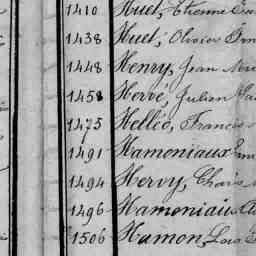 1410 Huet, Etienne
1438 Huet, Olivier
1448 Henry, Jean
1458 Hervé, Julien
1475 Helléo, Francis
1491 Hamoniaux
1494 Hervy, Charles
1496 Hamoniaux
1506 Hamon, Louis